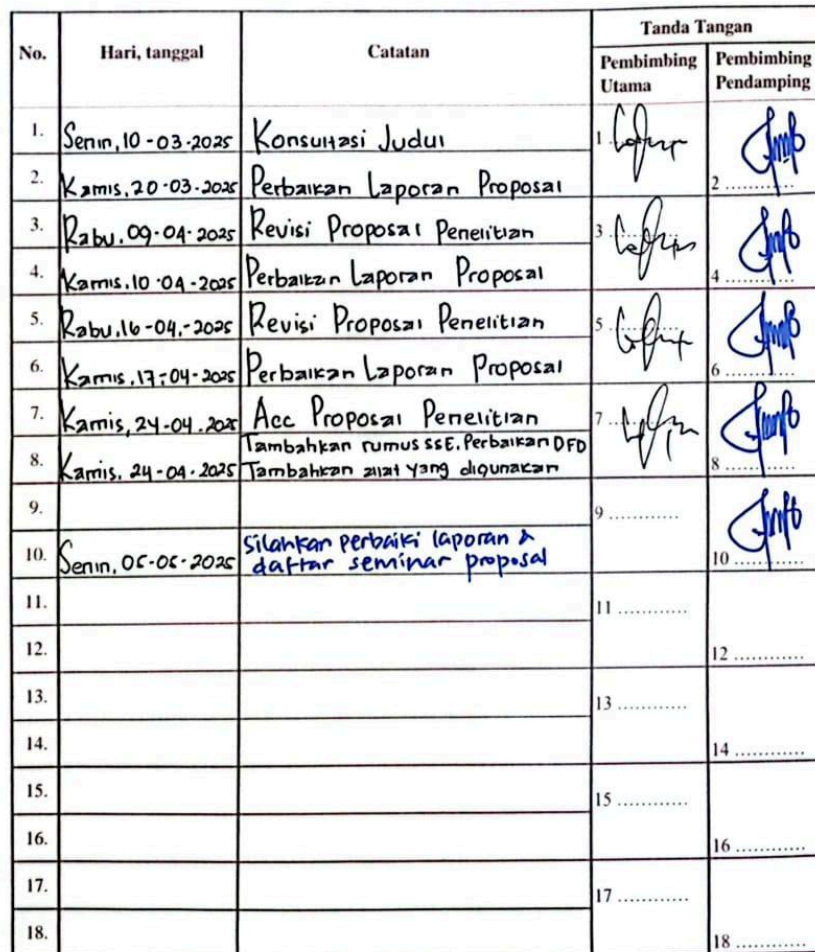 No. Hari, tanggal Catatan Tanda Tangan
Pembimbing Utama Pembimbing Pendamping
1. Senin, 10-03-2025 Konsultasi Judul 1
2. Kamis, 20-03-2025 Perbaikan Laporan Proposal 2 ............
3. Rabu, 09-04-2025 Revisi Proposal Penelitian 3
4. Kamis, 10-04-2025 Perbaikan Laporan Proposal 4 ............
5. Rabu, 16-04-2025 Revisi Proposal Penelitian 5
6. Kamis, 17-04-2025 Perbaikan Laporan Proposal 6 ............
7. Kamis, 24-04-2025 Acc Proposal Penelitian 7
8. Kamis, 24-04-2025 Tambahkan rumus SSE. Perbaikan DFD
Tambahkan allat yang digunakan 8 ............
9. 9 ............
10. Senin, 05-05-2025 Silahkan perbaiki laporan &
daftar seminar proposal 10 ............
11. 11 ............
12. 12 ............
13. 13 ............
14. 14 ............
15. 15 ............
16. 16 ............
17. 17 ............
18. 18 ............